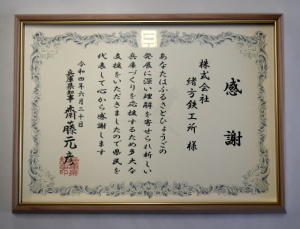 感謝
株式会社
緒方鉄工所 様
あなたはふるさとひょうごの
発展に深い理解を寄せられ新しい
兵庫づくりを応援するため多大な
支援をいただきましたので県民を
代表して心から感謝します
令和四年六月三十日
兵庫県知事 齋藤元彦